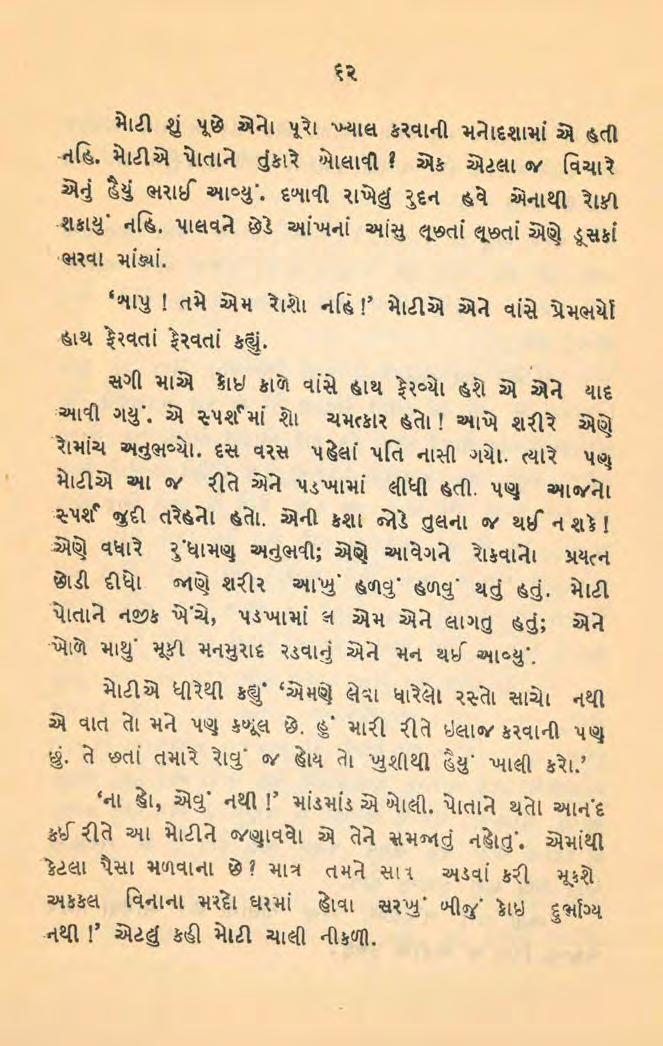 ૬૨
મોટી શું પૂછે એનો પૂરો ખ્યાલ કરવાની મનોદશામાં એ હતી
નહિ. મોટીએ પોતાને તુંકારે બોલાવી ? એક એટલા જ વિચારે
એનું હૈયું ભરાઈ આવ્યું. દબાવી રાખેલું રુદન હવે એનાથી રોકી
શકાયું નહિ. પાલવને છેડે આંખનાં આંસુ લૂછતાં લૂછતાં એણે ડૂસકાં
ભરવા માંડ્યાં.
‘બાપુ ! તમે એમ રોશો નહિં !’ મોટીએ એને વાંસે પ્રેમભર્યો
હાથ ફેરવતાં ફેરવતાં કહ્યું.
સગી માએ કોઇ કાળે વાંસે હાથ ફેરવ્યો હશે એ એને યાદ
આવી ગયું. એ સ્પર્શમાં શો ચમત્કાર હતો ! આખે શરીરે એણે
રોમાંચ અનુભવ્યો. દસ વરસ પહેલાં પતિ નાસી ગયો. ત્યારે પણ
મોટીએ આ જ રીતે એને પડખામાં લીધી હતી. પણ આજનો
સ્પર્શ જુદી તરેહનો હતો. એની કશા જોડે તુલના જ થઈ ન શકે !
એણે વધારે રુંધામણ અનુભવી; એણે આવેગને રોકવાનો પ્રયત્ન
છોડી દીધો જાણે શરીર આખું હળવું હળવું થતું હતું. મોટી
પોતાને નજીક ખેંચે, પડખામાં લ એમ એને લાગતુ હતું; એને
ખોળે માથું મૂકી મનમુરાદ રડવાનું એને મન થઈ આવ્યું.
મોટીએ ધીરેથી કહ્યું ‘એમણે લેવા ધારેલો રસ્તો સાચો નથી
એ વાત તો મને પણ કબૂલ છે. હું મારી રીતે ઇલાજ કરવાની પણ
છું. તે છતાં તમારે રોવું જ હોય તો ખુશીથી હૈયું ખાલી કરો.’
‘ના હો, એવું નથી !’ માંડમાંડ એ બોલી. પોતાને થતો આનંદ
કઈ રીતે આ મોટીને જણાવવો એ તેને સમજાતું નહોતું. એમાંથી
કેટલા પૈસા મળવાના છે ? માત્ર તમને અડવાં કરી મૂકશે
અક્કલ વિનાના મરદો ઘરમાં હોવા સરખું બીજું કોઇ દુર્ભાગ્ય
નથી !’ એટલું કહી મોટી ચાલી નીકળી.